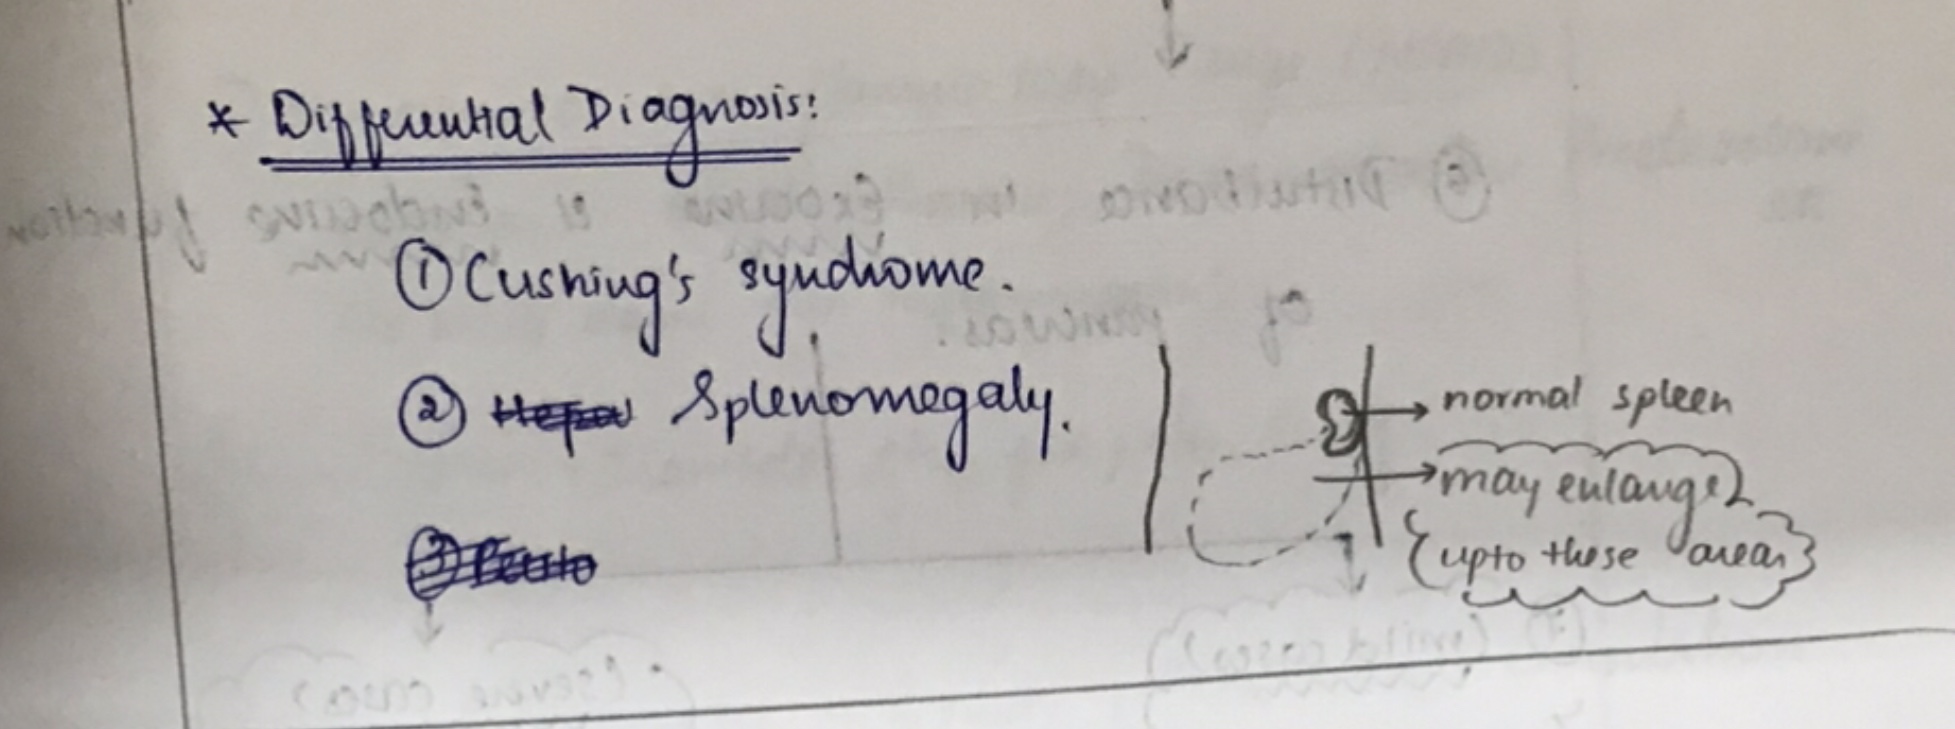 * Differential Diagnosis:
① Cushing's syndrome.
② Splenomegaly.
normal spleen
may enlarge
(upto these areas)